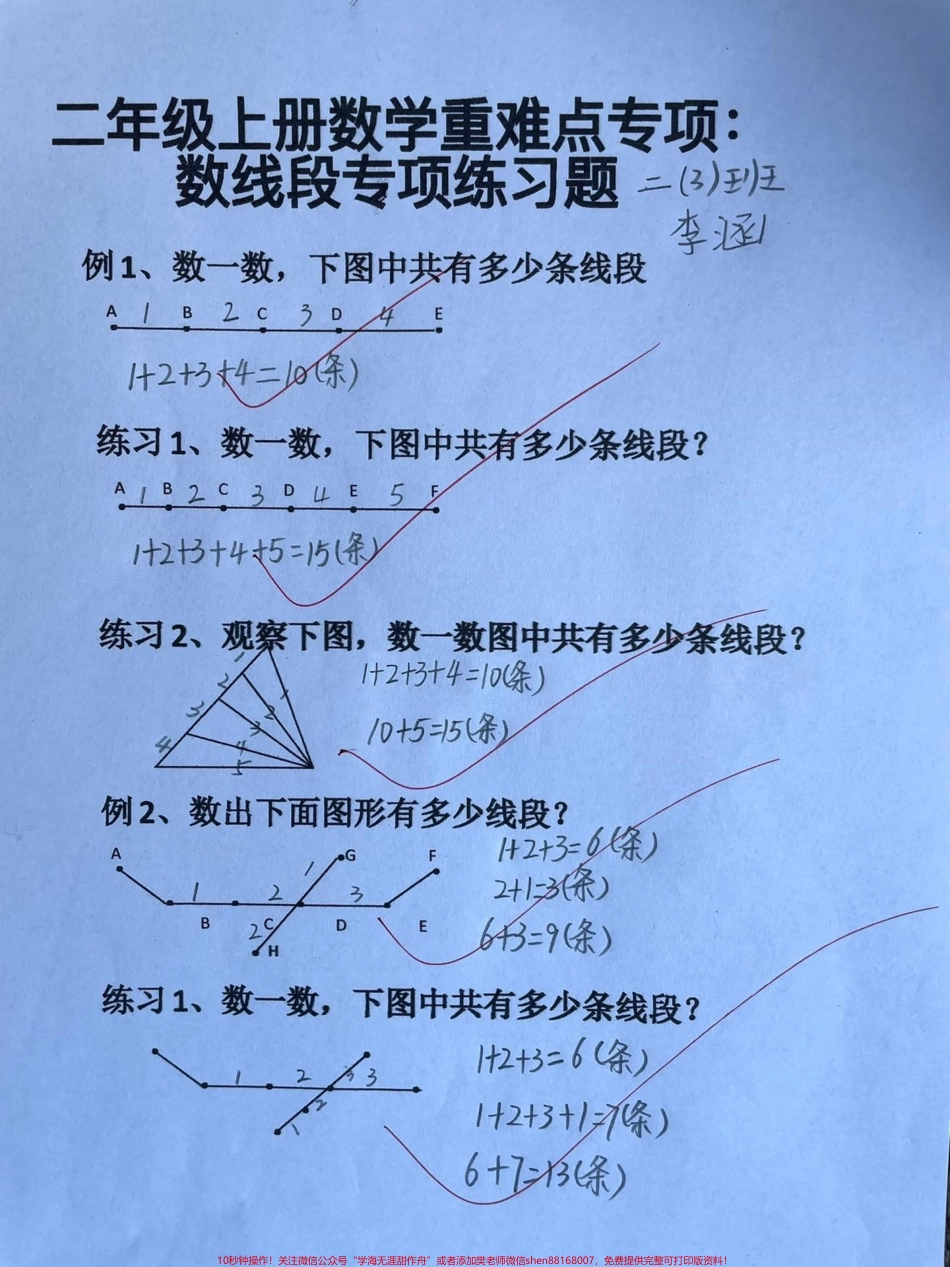 二年级上册数学重难点专项：
数线段专项练习题 二(3)班
李涵
例1、数一数，下图中共有多少条线段
A 1 B 2 C 3 D 4 E
1+2+3+4=10(条)
练习1、数一数，下图中共有多少条线段？
A 1 B 2 C 3 D 4 E 5 F
1+2+3+4+5=15(条)
练习2、观察下图，数一数图中共有多少条线段？
1 2 3 4 1 2 3 4 5
1+2+3+4=10(条)
10+5=15(条)
例2、数出下面图形有多少线段？
A G F
1 2 1 3
B C D E
2 H
1+2+3=6(条)
2+1=3(条)
6+3=9(条)
练习1、数一数，下图中共有多少条线段？
1 2 3 3
2
1
1+2+3=6(条)
1+2+3+1=7(条)
6+7=13(条)
10秒钟操作！关注微信公众号“学海无涯甜作舟”或者添加樊老师微信shen88168007，免费提供完整可打印版资料！